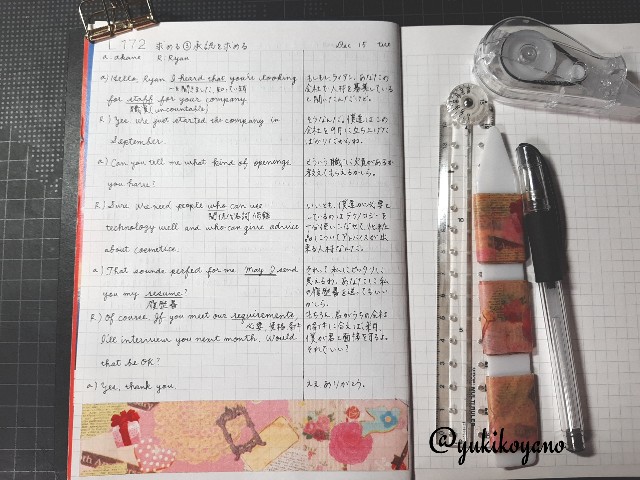 L 172 求める③承認を求める Dec 15 tue
a. akane R. Ryan
a) Hello, Ryan I heard that you're looking
for staff for your company.
職員(uncountable)
R) Yes we just started the company in
September.
a) Can you tell me what kind of openings
you have?
R) Sure We need people who can use
関係代名詞 省略
technology well and who can give advice
about cosmetics.
a) That sounds perfect for me. May I send
you my resume?
履歴書
R) Of course. If you meet our requirements,
必要, 資格, 条件
I'll interview you next month. Would
that be OK?
a) Yes, thank you.
もしもし, ライアン, あなたの
会社で人材を募集している
と聞いたんだけど。
そうなんだ。僕達はこの
会社を9月に立ち上げた
ばかりだからね。
どういう職に欠員があるか
教えてもらえるかしら。
いいとも。僕達が必要と
しているのはテクノロジーを
品についてアドバイスが出
来る人材なんだ。
それって私にピッタリに
思えるわ。あなたに私
の履歴書を送ってもいい
かしら。
もちろん。君がうちの会社
の条件に合えば来月,
僕が君と面接をするよ。
それでいい?
ええ ありがとう。
@yukikoyano